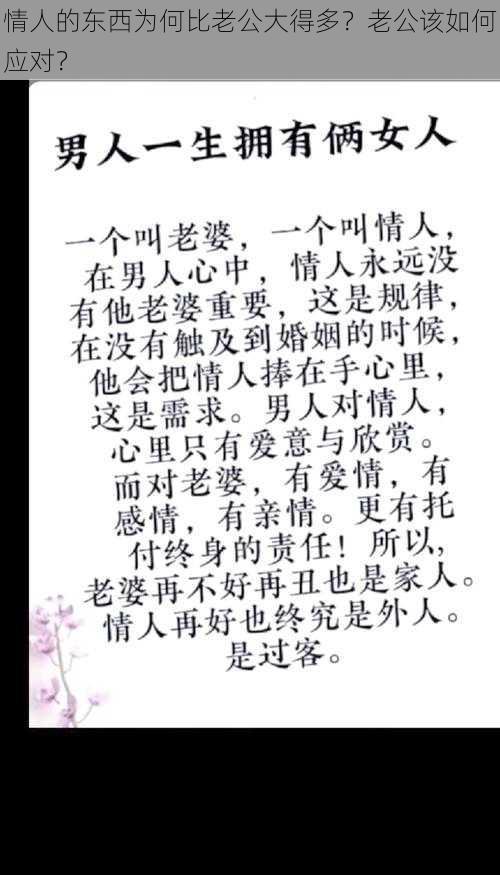 情人的东西为何比老公大得多？老公该如何
应对？
男人一生拥有俩女人
一个叫老婆，一个叫情人，
在男人心中，情人永远没
有他老婆重要，这是规律，
在没有触及到婚姻的时候，
他会把情人捧在手心里，
这是需求。男人对情人，
心里只有爱意与欣赏。
而对老婆，有爱情，有
感情，有亲情。更有托
付终身的责任！所以，
老婆再不好再丑也是家人。
情人再好也终究是外人。
是过客。